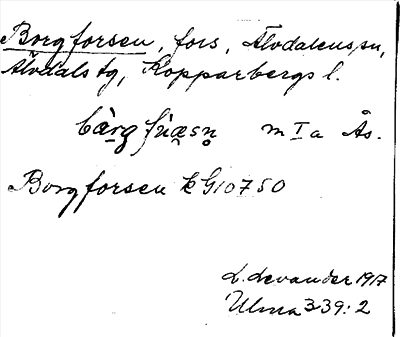 Borgforsen, fors, Älvdalens sn,
Älvdals tg, Kopparbergs l.
m I a Ås.
Borgforsen k G10750
L. Levander 1917
Ulma 339:2